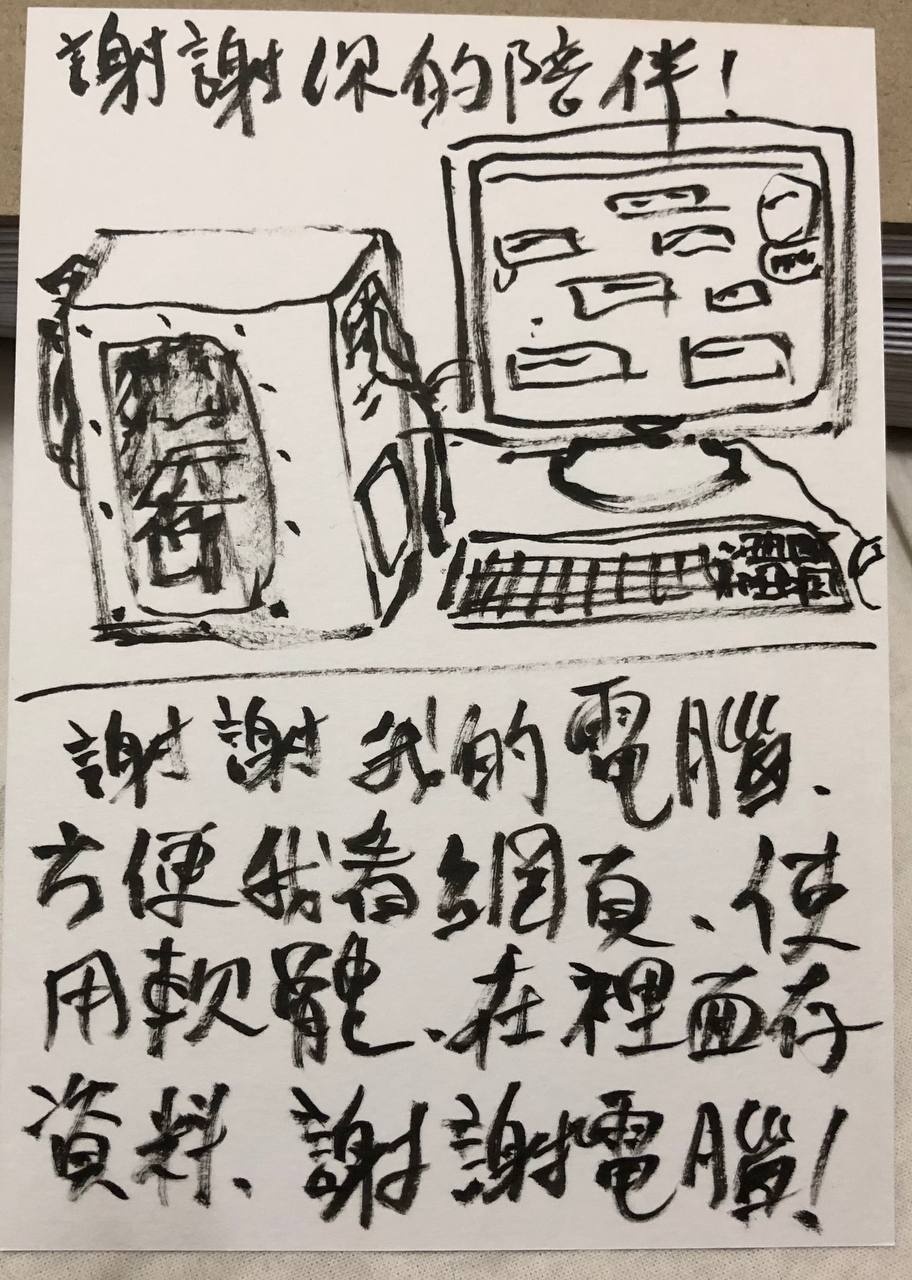 謝謝你的陪伴!
謝謝我的電腦、
方便我看網頁、使
用軟體、在裡面存
資料、謝謝電腦!